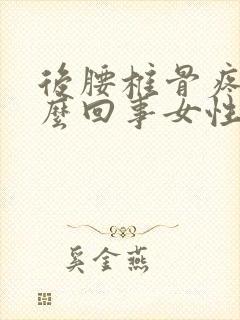 後腰椎骨疼
麼回事女性
奚金燕